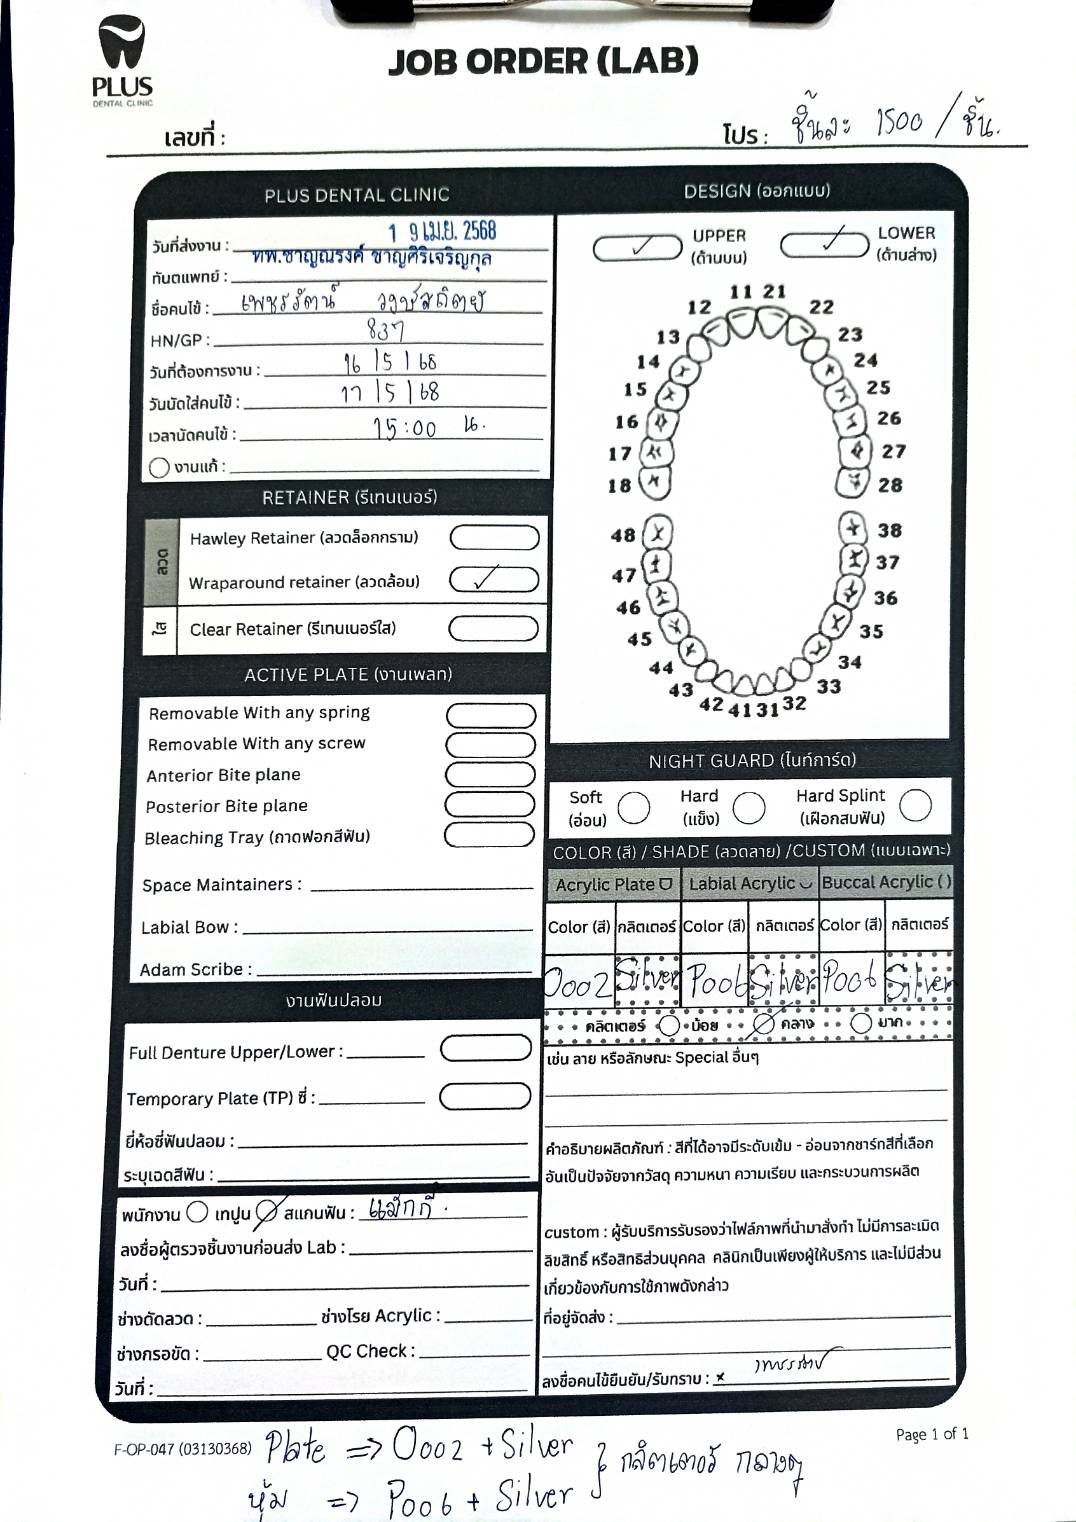 PLUS
DENTAL CLINIC
JOB ORDER (LAB)
เลขที่ :
โปร : ชิ้นละ 1500 / ชิ้น.
PLUS DENTAL CLINIC
วันที่ส่งงาน : 1 9 เม.ย. 2568
ทันตแพทย์ : ทพ.ชาญณรงค์ ชาญศิริเจริญกุล
ชื่อคนไข้ : เพชรรัตน์
HN/GP : 837
วันที่ต้องการงาน : 16 | 5 | 68
วันนัดใส่คนไข้ : 17 | 5 | 68
เวลานัดคนไข้ : 15:00 น.
งานแก้ :
RETAINER (รีเทนเนอร์)
ลวด
Hawley Retainer (ลวดล็อกกราม)
Wraparound retainer (ลวดล้อม)
ใส
Clear Retainer (รีเทนเนอร์ใส)
ACTIVE PLATE (งานเพลท)
Removable With any spring
Removable With any screw
Anterior Bite plane
Posterior Bite plane
Bleaching Tray (ถาดฟอกสีฟัน)
Space Maintainers :
Labial Bow :
Adam Scribe :
งานฟันปลอม
Full Denture Upper/Lower :
Temporary Plate (TP) ซี่ :
ยี่ห้อซี่ฟันปลอม :
ระบุเฉดสีฟัน :
พนักงาน เทปูน สแกนฟัน : แม็กกี้
ลงชื่อผู้ตรวจชิ้นงานก่อนส่ง Lab :
วันที่ :
ช่างดัดลวด : ช่างโรย Acrylic :
ช่างกรอขัด : QC Check :
วันที่ :
DESIGN (ออกแบบ)
UPPER
(ด้านบน)
LOWER
(ด้านล่าง)
11 21
12 22
13 23
14 24
15 25
16 26
17 27
18 28
48 38
47 37
46 36
45 35
44 34
43 33
42 41 31 32
NIGHT GUARD (ไนท์การ์ด)
Soft Hard Hard Splint
(อ่อน) (แข็ง) (เฝือกสบฟัน)
COLOR (สี) / SHADE (ลวดลาย) /CUSTOM (แบบเฉพาะ)
Acrylic Plate Labial Acrylic Buccal Acrylic ( )
Color (สี) กลิตเตอร์ Color (สี) กลิตเตอร์ Color (สี) กลิตเตอร์
O002 Silver P006 Silver P006 Silver
กลิตเตอร์ น้อย กลาง มาก
เช่น ลาย หรือลักษณะ Special อื่นๆ
คำอธิบายผลิตภัณฑ์ : สีที่ได้อาจมีระดับเข้ม - อ่อนจากชาร์ทสีที่เลือก
อันเป็นปัจจัยจากวัสดุ ความหนา ความเรียบ และกระบวนการผลิต
custom : ผู้รับบริการรับรองว่าไฟล์ภาพที่นำมาสั่งทำ ไม่มีการละเมิด
ลิขสิทธิ์ หรือสิทธิส่วนบุคคล คลินิกเป็นเพียงผู้ให้บริการ และไม่มีส่วน
เกี่ยวข้องกับการใช้ภาพดังกล่าว
ที่อยู่จัดส่ง :
ลงชื่อคนไข้ยืนยัน/รับทราบ : x
F-OP-047 (03130368)
Page 1 of 1
Plate => O002 + Silver
หุ้ม => P006 + Silver
} กลิตเตอร์ กลางๆ